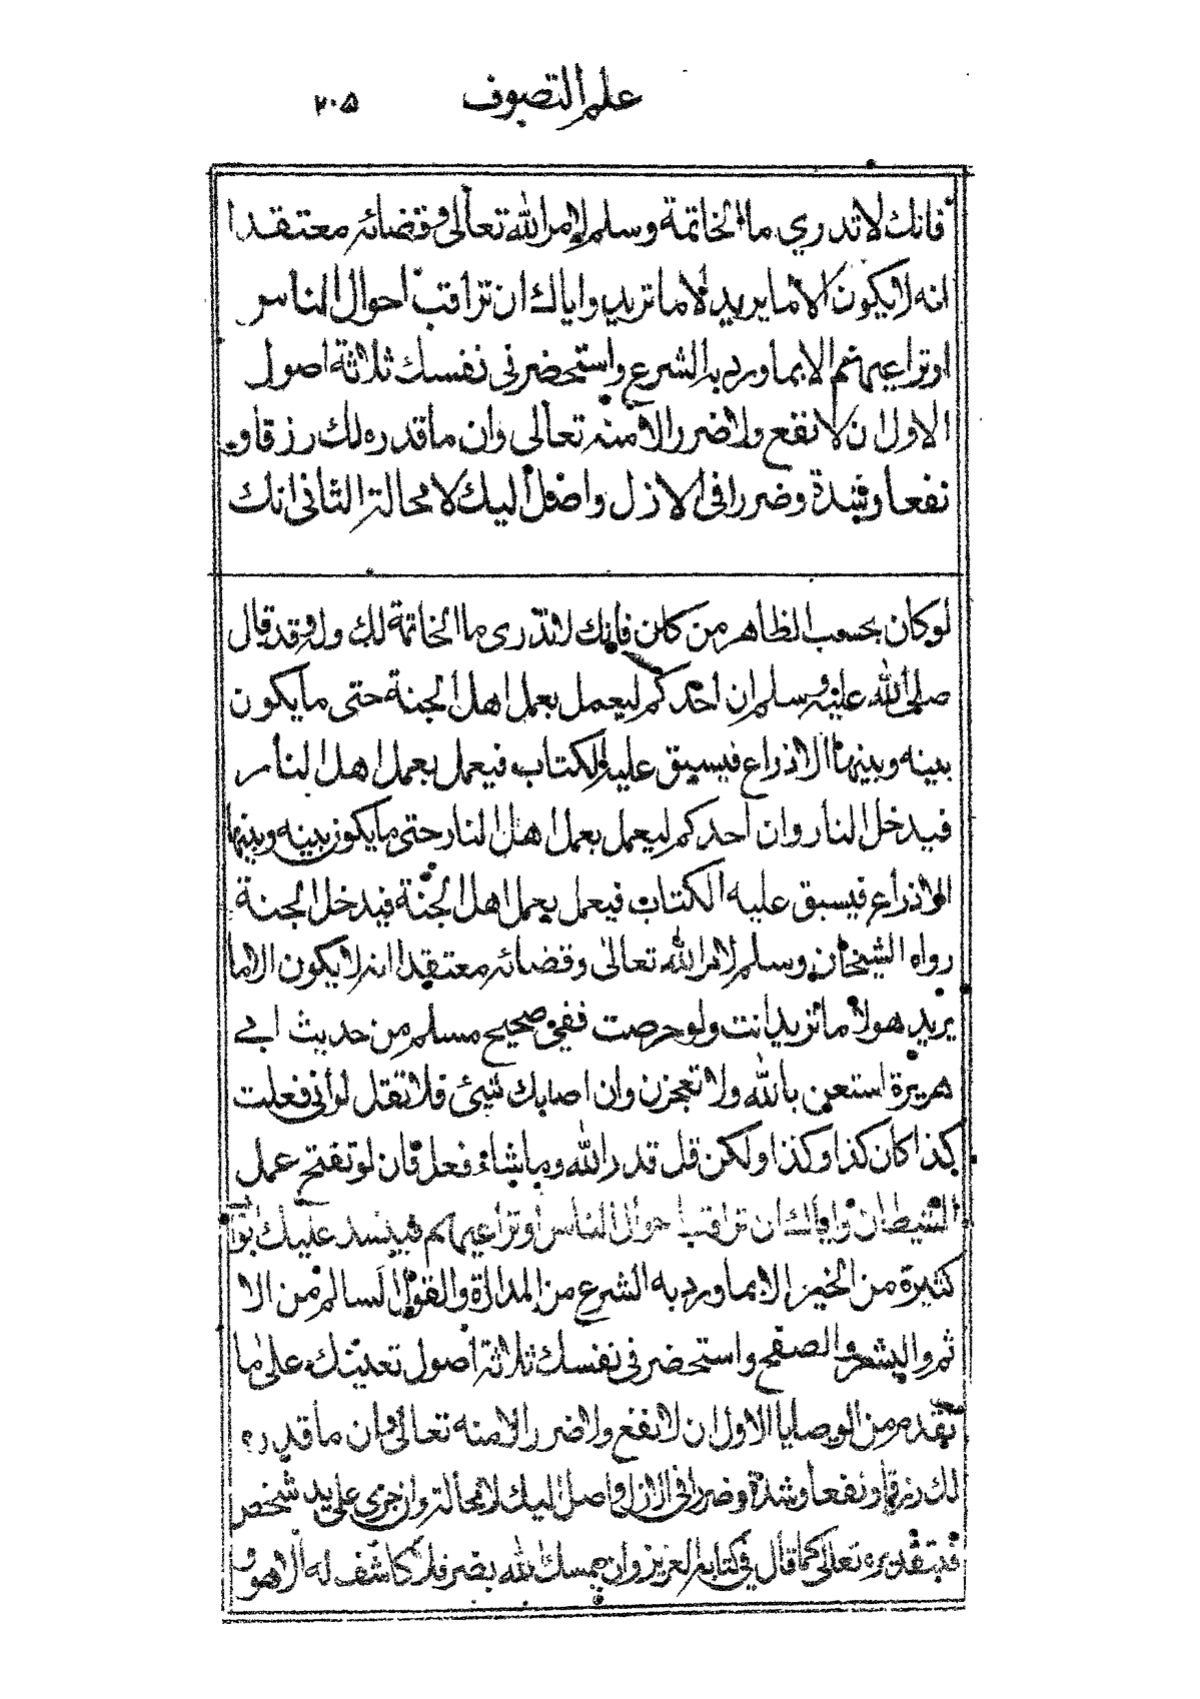 علم التصوف ٢٠٥
فانك لا تدري ما الخاتمة وسلم لامر الله تعالى وقضائه معتقدا
انه لا يكون الا ما يريد لا ما تريد واياك ان تراقب احوال الناس
او تراعيهم الا بما ورد به الشرع واستحضر في نفسك ثلاثة اصول
الاول ان لا نفع ولا ضرر الا منه تعالى وان ما قدره لك رزقا و
نفعا وشدة وضررا في الازل واصل اليك لا محالة الثاني انك
لو كان بحسب الظاهر من كان فانك لا تدري ما الخاتمة لك وله وقد قال
صلى الله عليه وسلم ان احدكم ليعمل بعمل اهل الجنة حتى ما يكون
بينه وبينها الا ذراع فيسبق عليه الكتاب فيعمل بعمل اهل النار
فيدخل النار وان احدكم ليعمل بعمل اهل النار حتى ما يكون بينه وبينها
الا ذراع فيسبق عليه الكتاب فيعمل بعمل اهل الجنة فيدخل الجنة
رواه الشيخان وسلم لامر الله تعالى وقضائه معتقدا انه لا يكون الا ما
يريد هو لا ما تريد انت ولو حرصت ففي صحيح مسلم من حديث ابي
هريرة استعن بالله ولا تعجزن وان اصابك شيئ فلا تقل لو أني فعلت
كذا كان كذا وكذا ولكن قل قدر الله وما شاء فعل فان لو تفتح عمل
الشيطان واياك ان تراقب احوال الناس او تراعيهم فيفسد عليك
كثيرة من الخير الا بما ورد به الشرع من المداراة والقول السالم من الا
ثم والبشر والصفح واستحضر في نفسك ثلاثة اصول تعينك على ما
تقدم من الوصايا الاول ان لا نفع ولا ضرر الا منه تعالى وان ما قدره
لك رزقا ونفعا وشدة وضررا في الازل واصل اليك لا محالة وان جرى على يد شخص
فبتقديره تعالى كما قال في كتابه العزيز وان يمسك الله بضر فلا كاشف له الا هو و